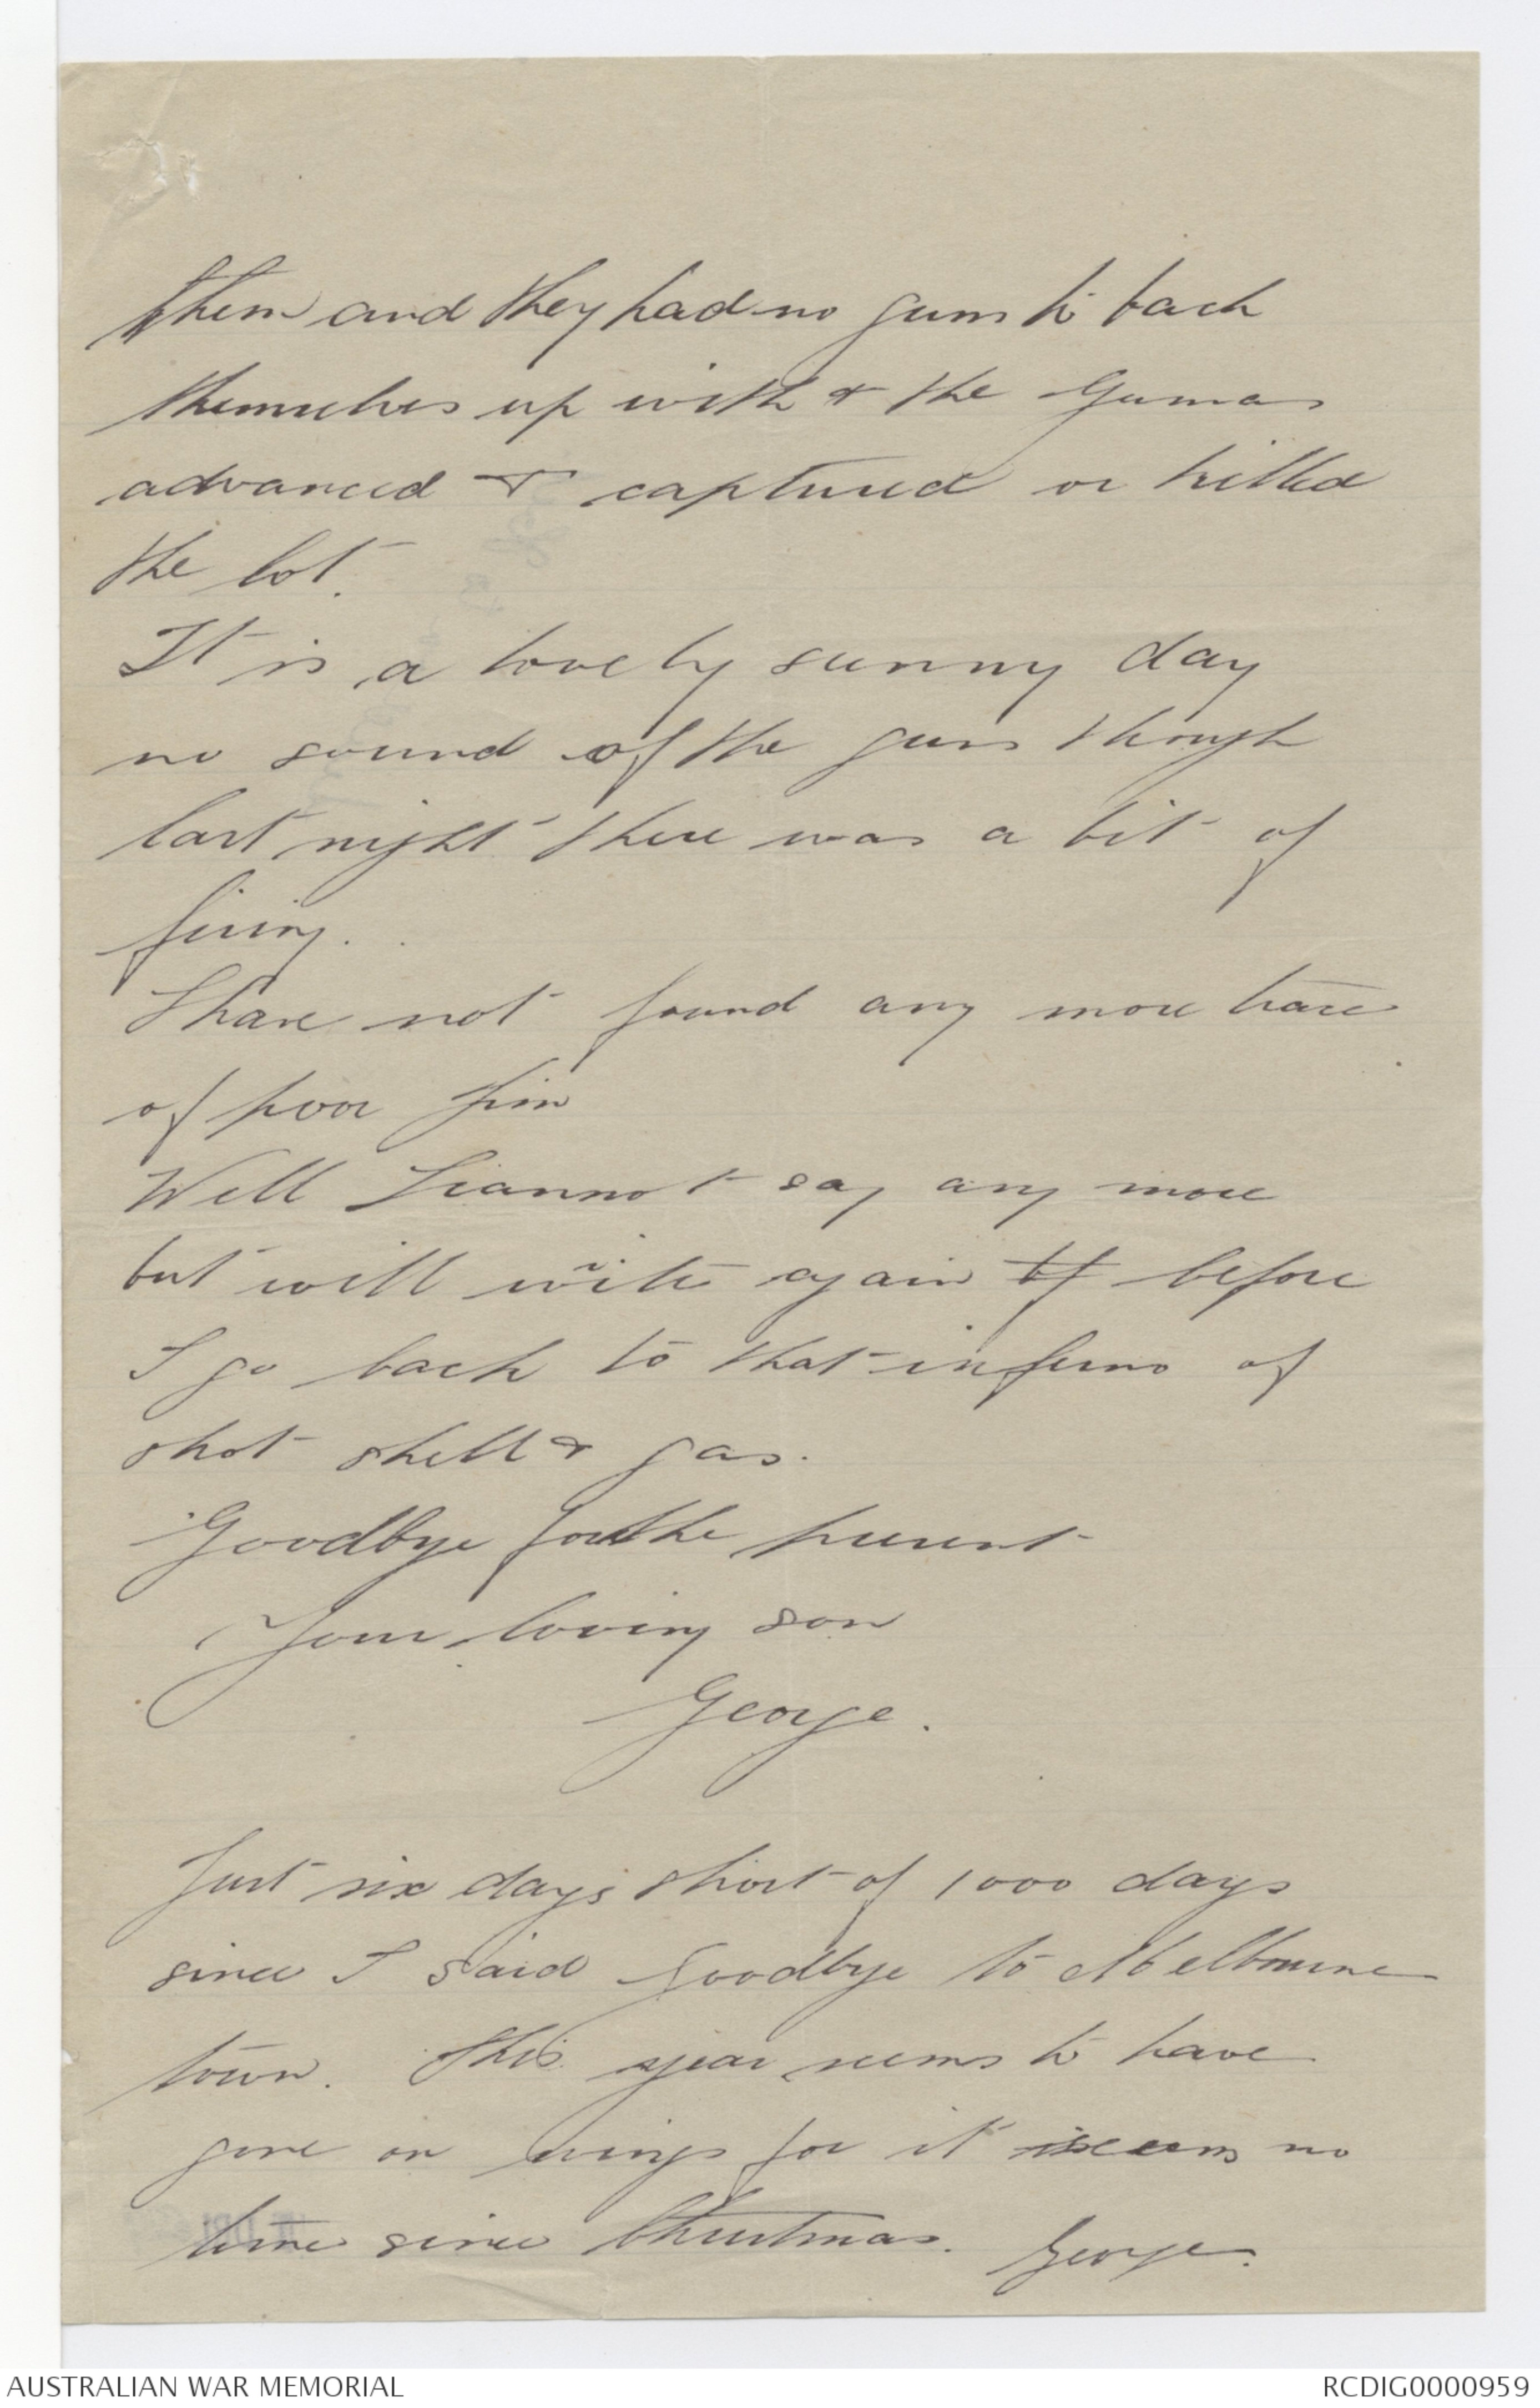 them and they had no guns to back
themselves up with & the Germans
advanced & captured or killed
the lot.
It is a lovely sunny day
no sound of the guns though
last night there was a bit of
firing.
I have not found any more trace
of poor Jim
Well I cannot say any more
but will write again bf before
I go back to that inferno of
shot shell & gas.
Goodbye for the present
Your loving son
George.
Just six days short of 1000 days
since I said goodbye to Melbourne
town. This year seems to have
gone on wings for it seems no
time since Christmas. George.
AUSTRALIAN WAR MEMORIAL
RCDIG0000959